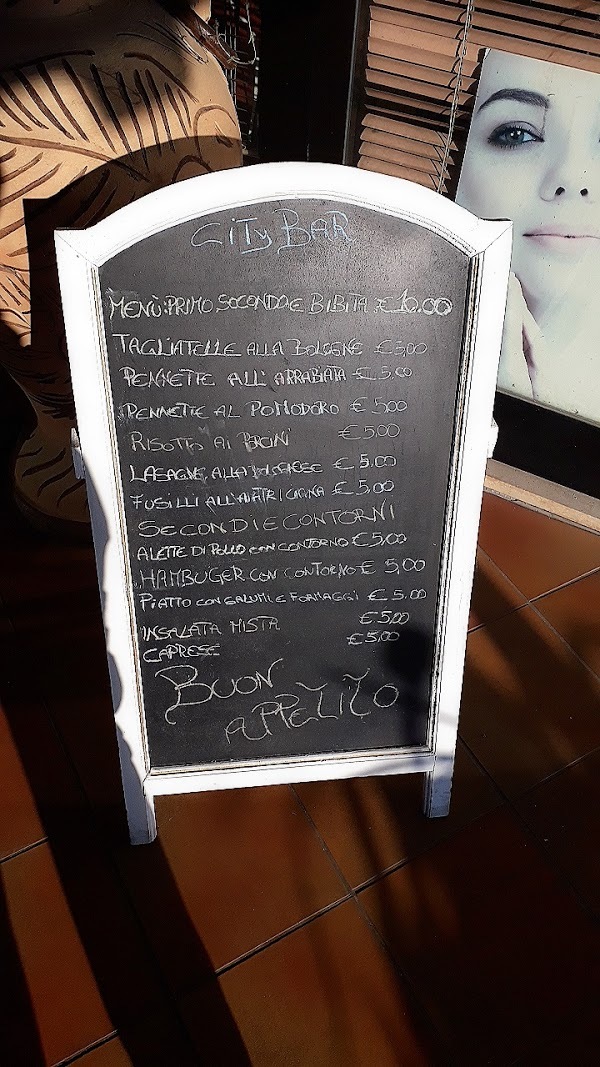 CiTy BAR
MENÙ: PRIMO, SECONDO E BIBITA € 10.00
TAGLIATELLE ALLA BOLOGNE € 5,00
PENNETTE ALL' ARRABIATA € 5.00
PENNETTE AL POMODORO € 5,00
RISOTTO AI PORCINI € 5,00
LASAGNE ALLA BOLOGNESE € 5.00
FUSILLI ALL'AMATRICIANA € 5,00
SECONDI E CONTORNI
ALETTE DI POLLO CON CONTORNO € 5,00
HAMBURGER CON CONTORNO € 5,00
PIATTO CON SALUMI E FORMAGGI € 5.00
INSALATA MISTA € 5,00
CAPRESE € 5.00
BUON
APPETITO